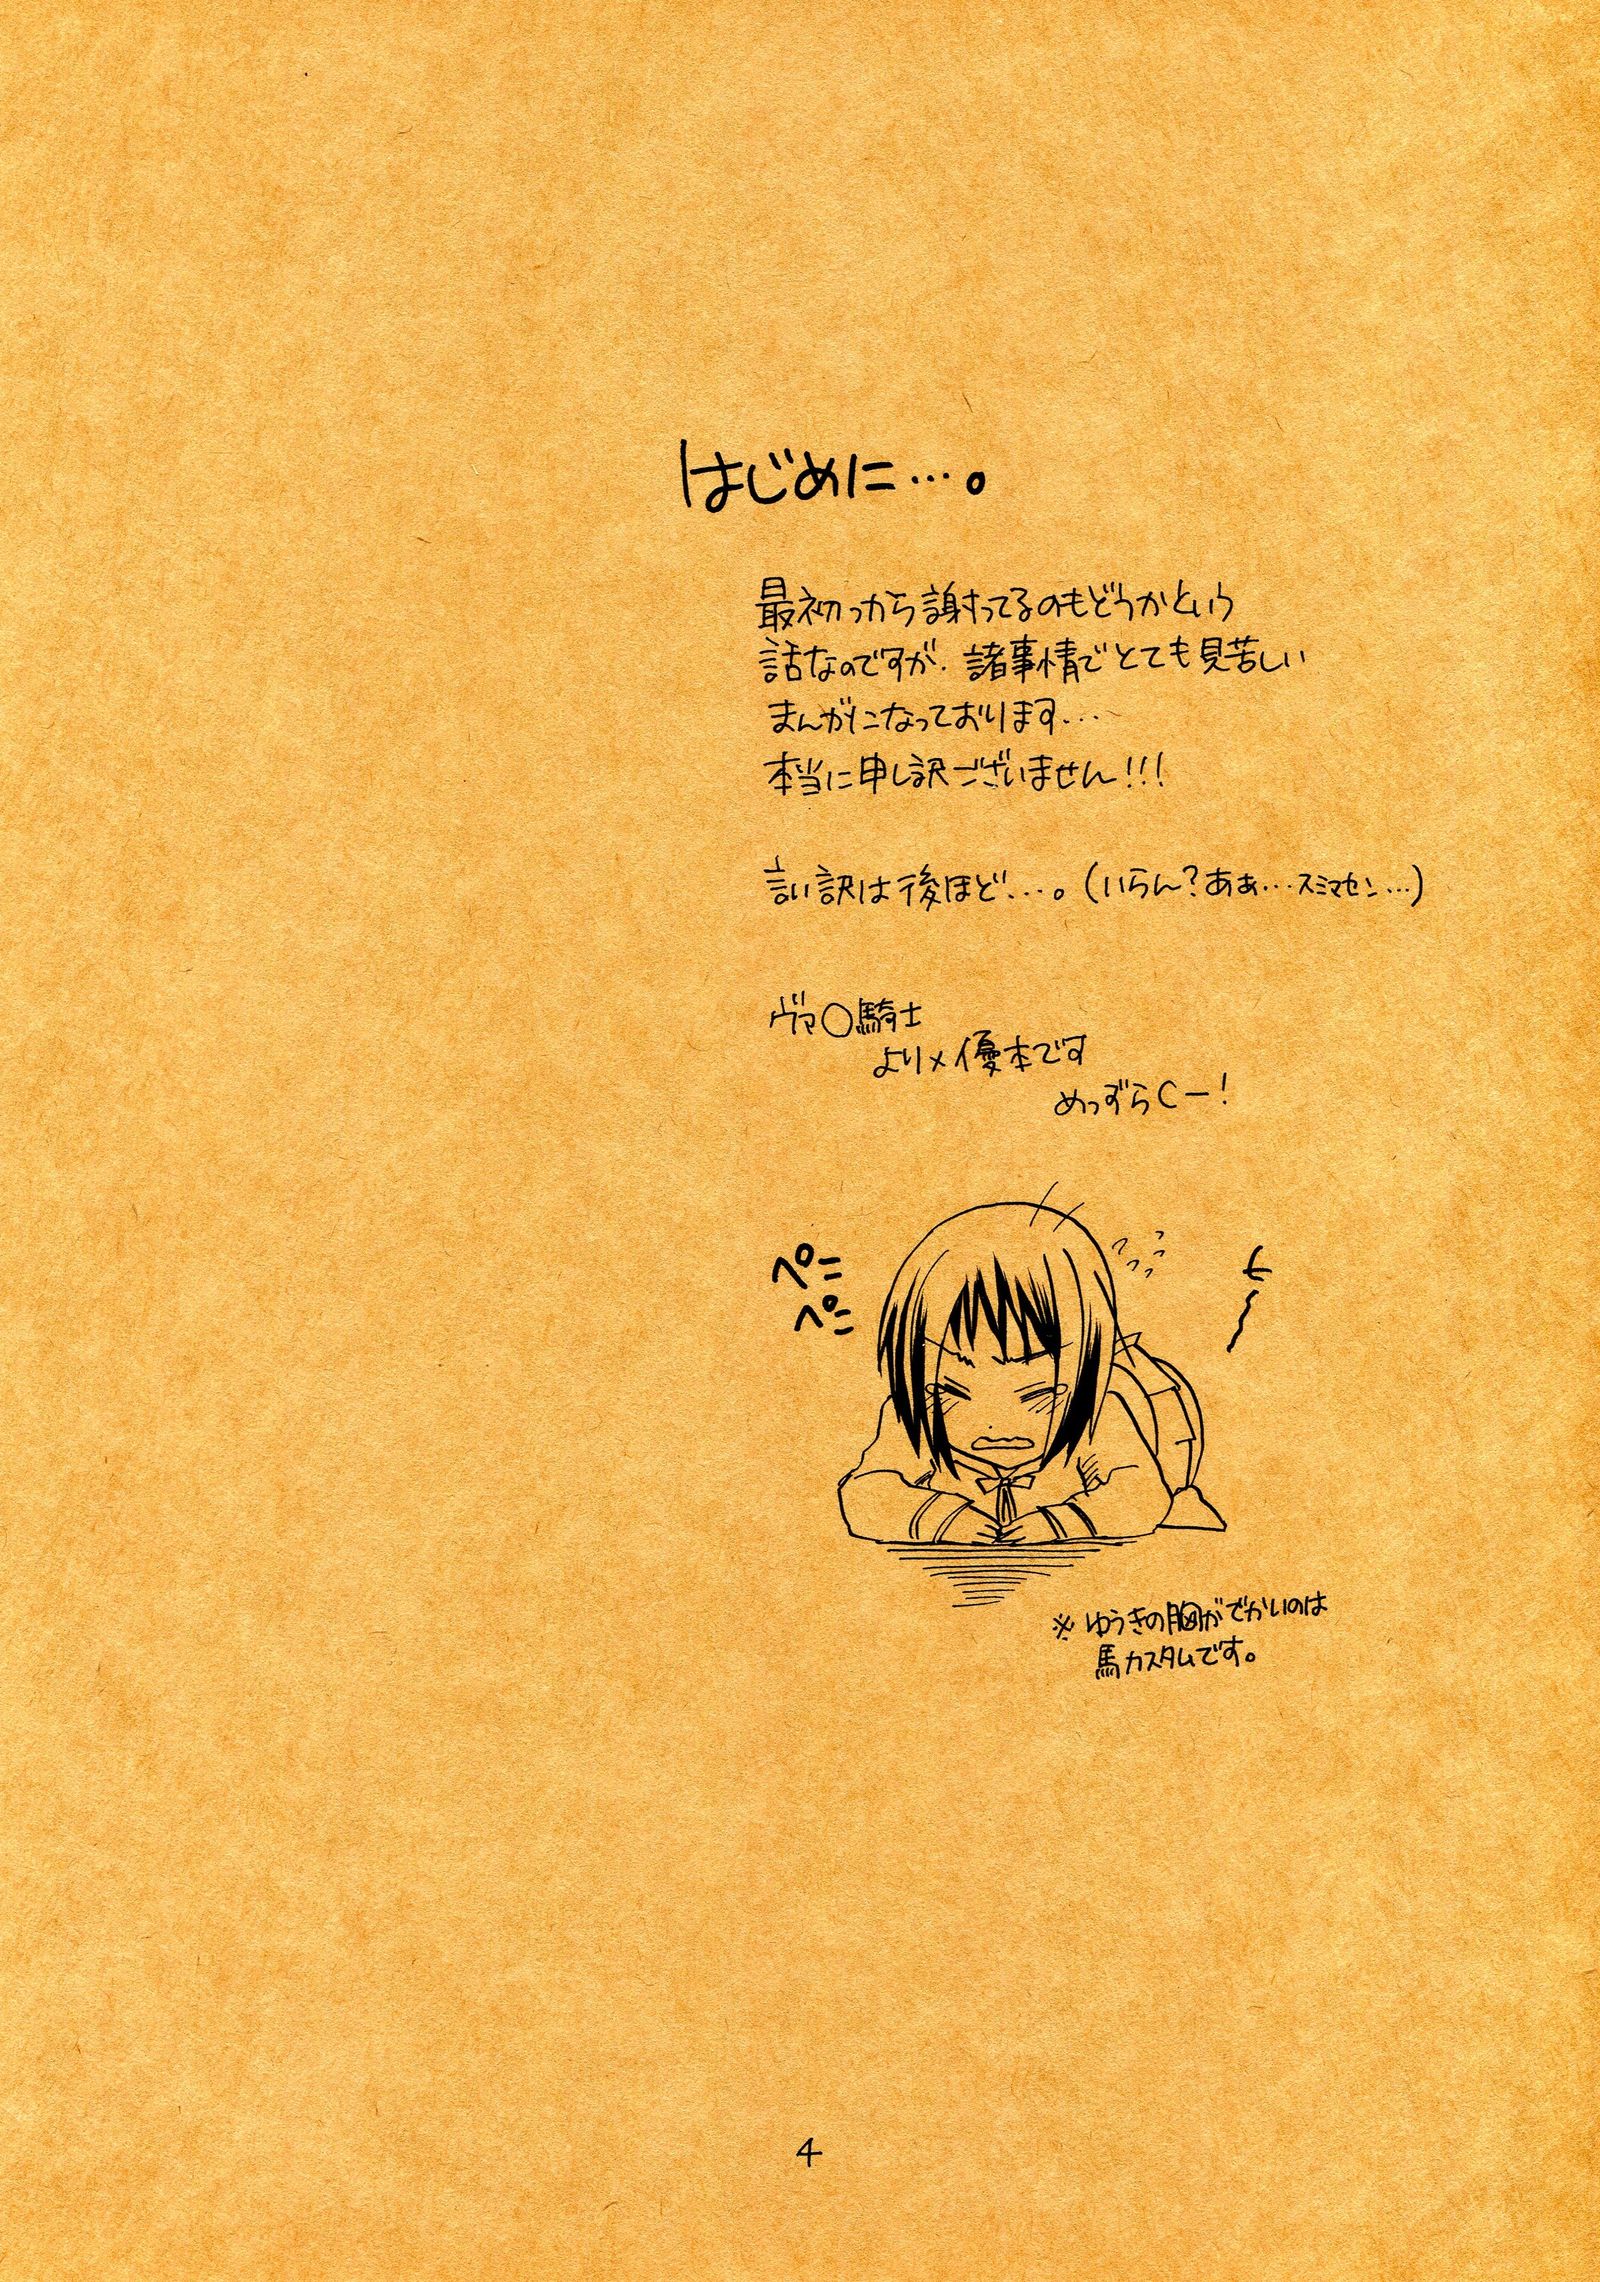 はじめに…。
最初っから謝ってるのもどうかという
話なのですが、諸事情でとても見苦しい
まんがになっております…
本当に申し訳ございません!!!
言い訳は後ほど…。(いらん?あぁ…スミマセン…)
ヴァ○騎士
より×優本です
めっずらCー!
ペコ
ペコ
※ゆうきの胸がでかいのは
馬カスタムです。
4